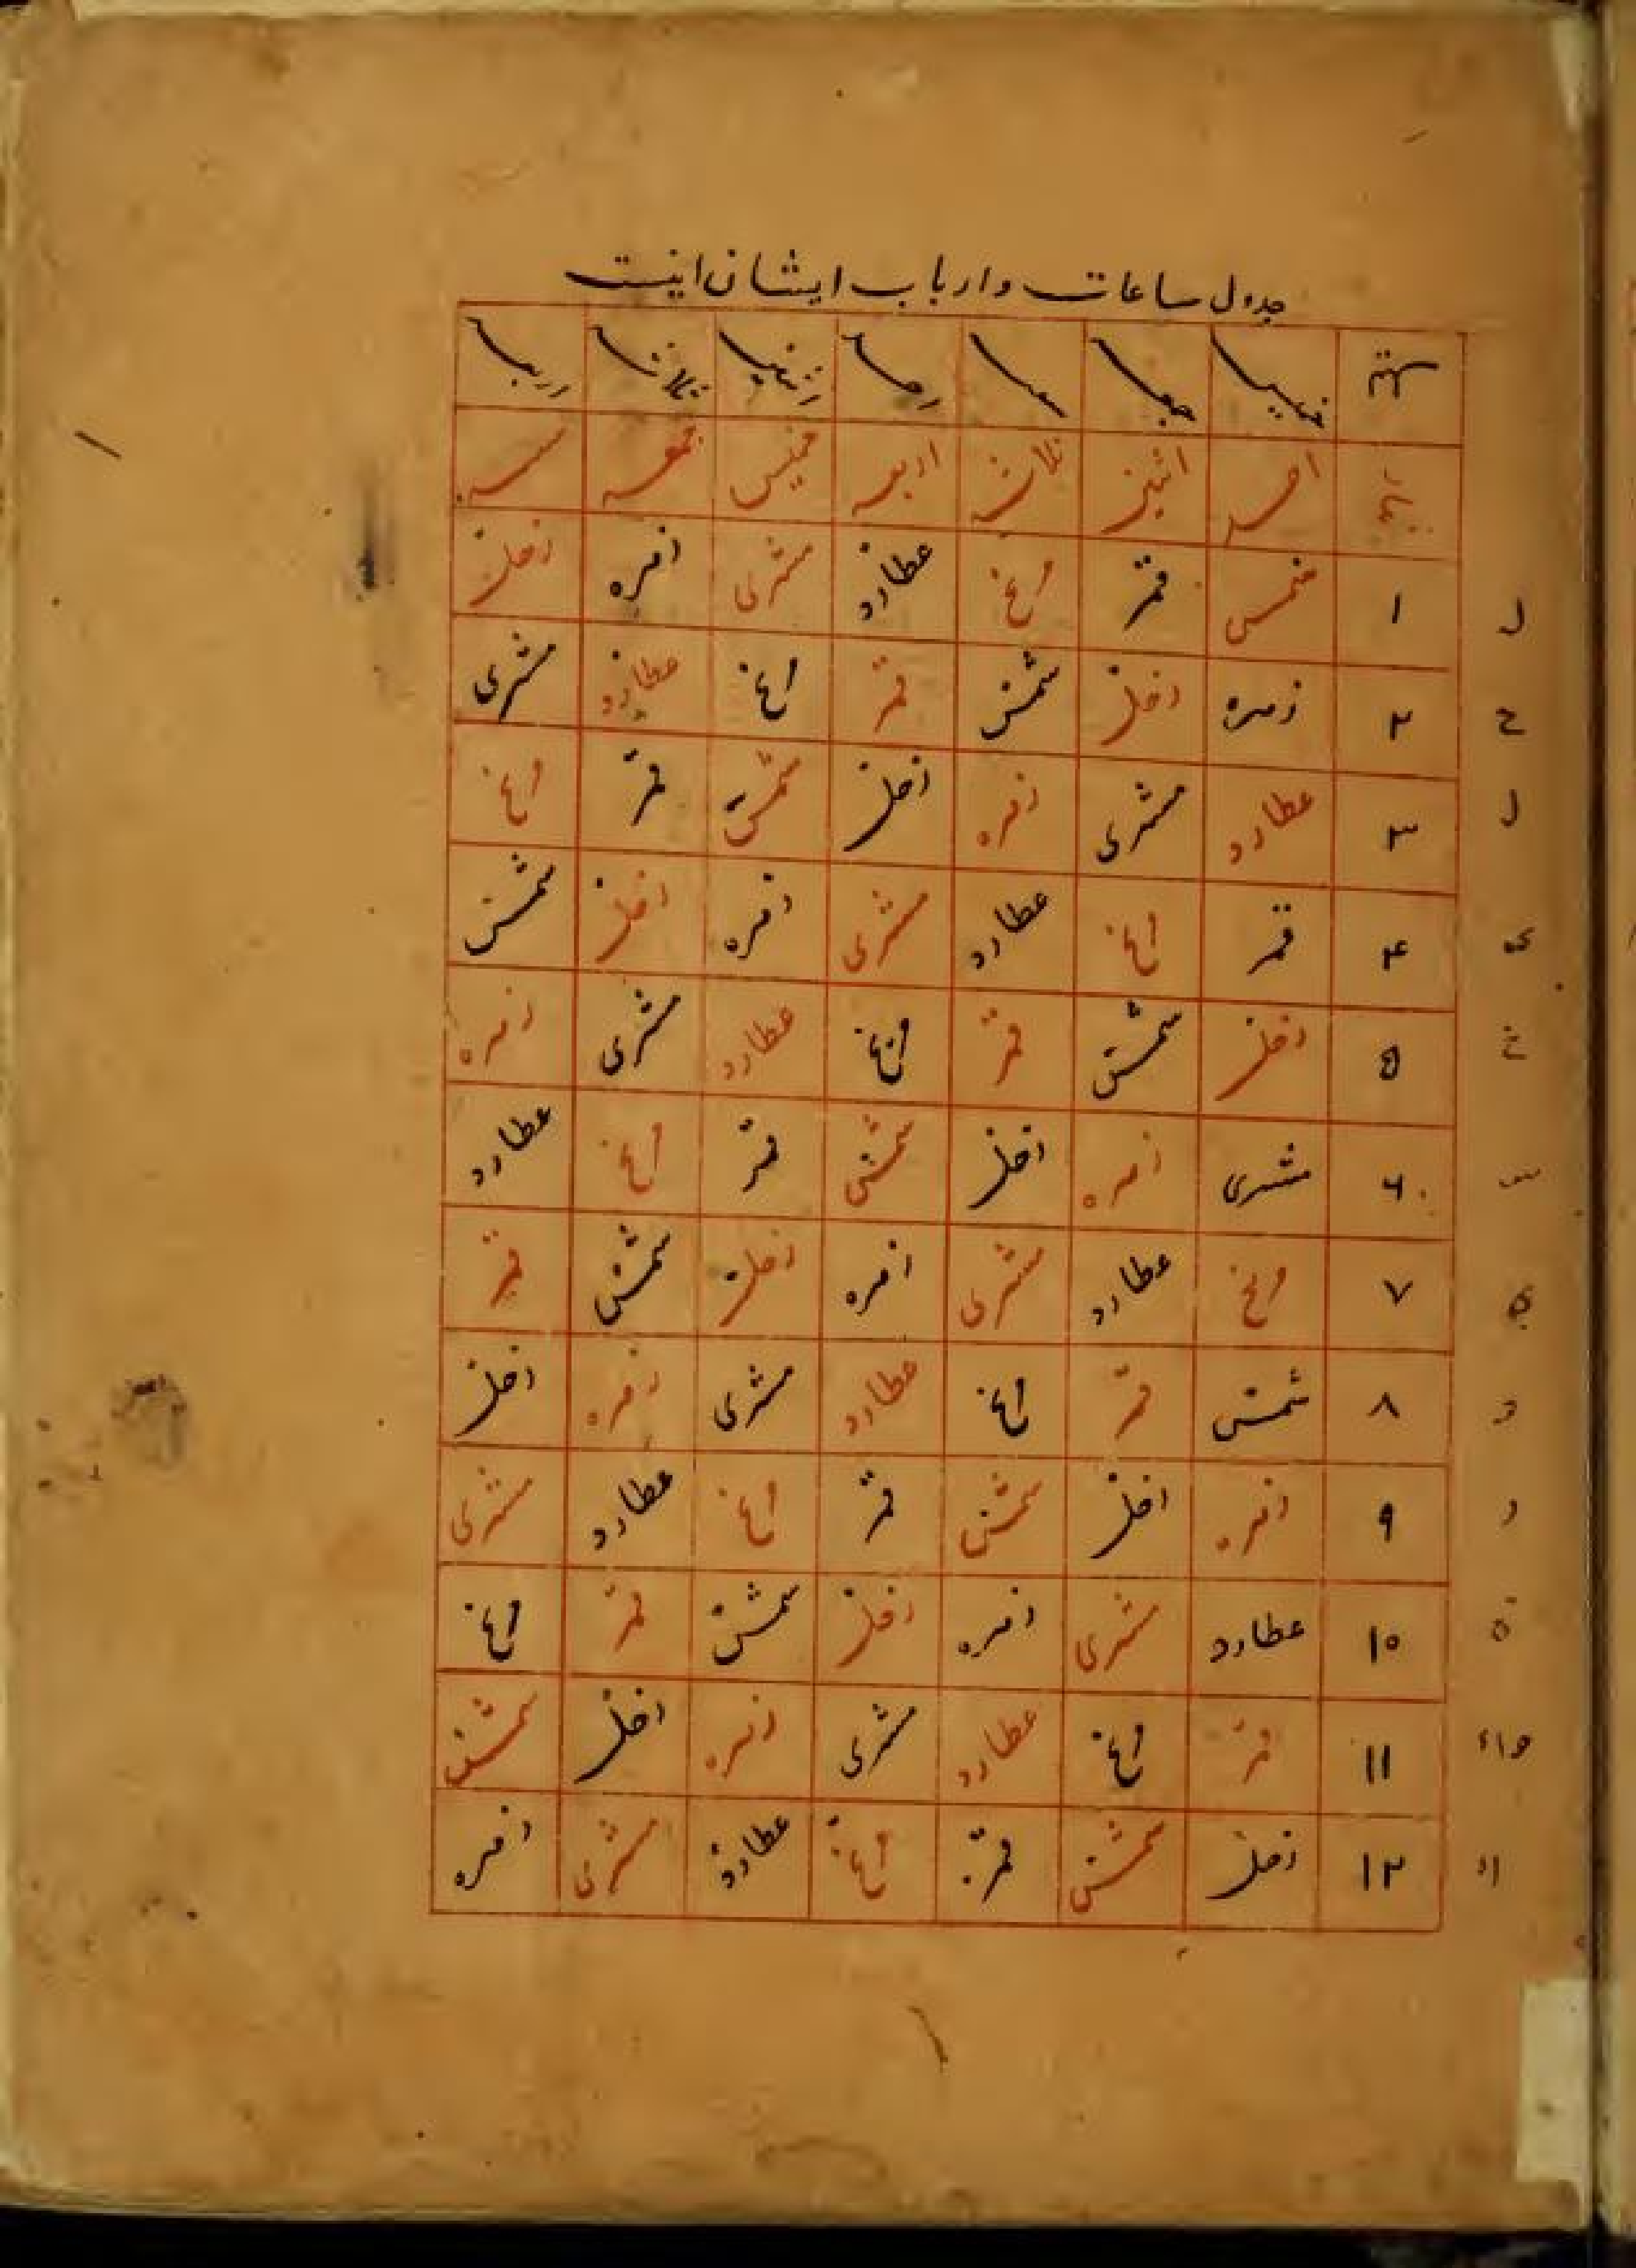 جدول ساعات و ارباب ایشان اینست
خمیس جمعه احد اثنین ثلاث اربعا
احد اثنین ثلاث اربعه خمیس جمعه
۱ شمس قمر مریخ عطارد مشتری زهره زحل
۲ زهره زحل شمس قمر مریخ عطارد مشتری
۳ عطارد مشتری زهره زحل شمس قمر مریخ
۴ قمر مریخ عطارد مشتری زهره زحل شمس
۵ زحل شمس قمر مریخ عطارد مشتری زهره
۶ مشتری زهره زحل شمس قمر مریخ عطارد
۷ مریخ عطارد مشتری زهره زحل شمس قمر
۸ شمس قمر مریخ عطارد مشتری زهره زحل
۹ زهره زحل شمس قمر مریخ عطارد مشتری
۱۰ عطارد مشتری زهره زحل شمس قمر مریخ
۱۱ قمر مریخ عطارد مشتری زهره زحل شمس
۱۲ زحل شمس قمر مریخ عطارد مشتری زهره